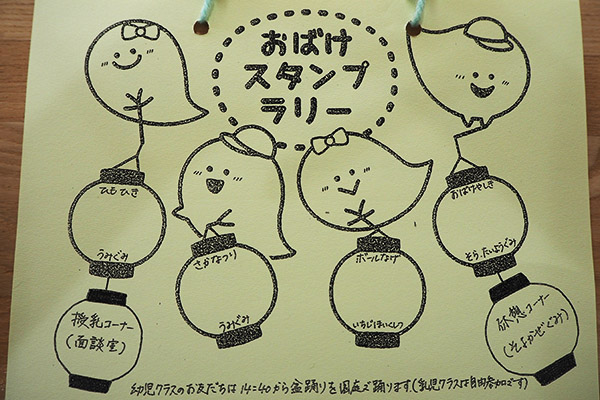 おばけ
スタンプ
ラリー
ひもひき
うみぐみ
さかなつり
うみぐみ
ボールなげ
いちじほいくしつ
おばけやしき
そら、たいようぐみ
授乳コーナー
(面談室)
休憩コーナー
(そよかぜぐみ)
幼児クラスのお友だちは14:40から盆踊りを園庭で踊ります。(乳児クラスは自由参加です)